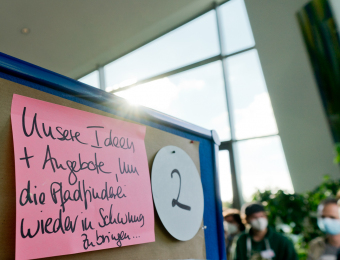 Unsere Ideen
+ Angebote, um
die Pfadfinderei
wieder in Schwung
zu bringen...
2